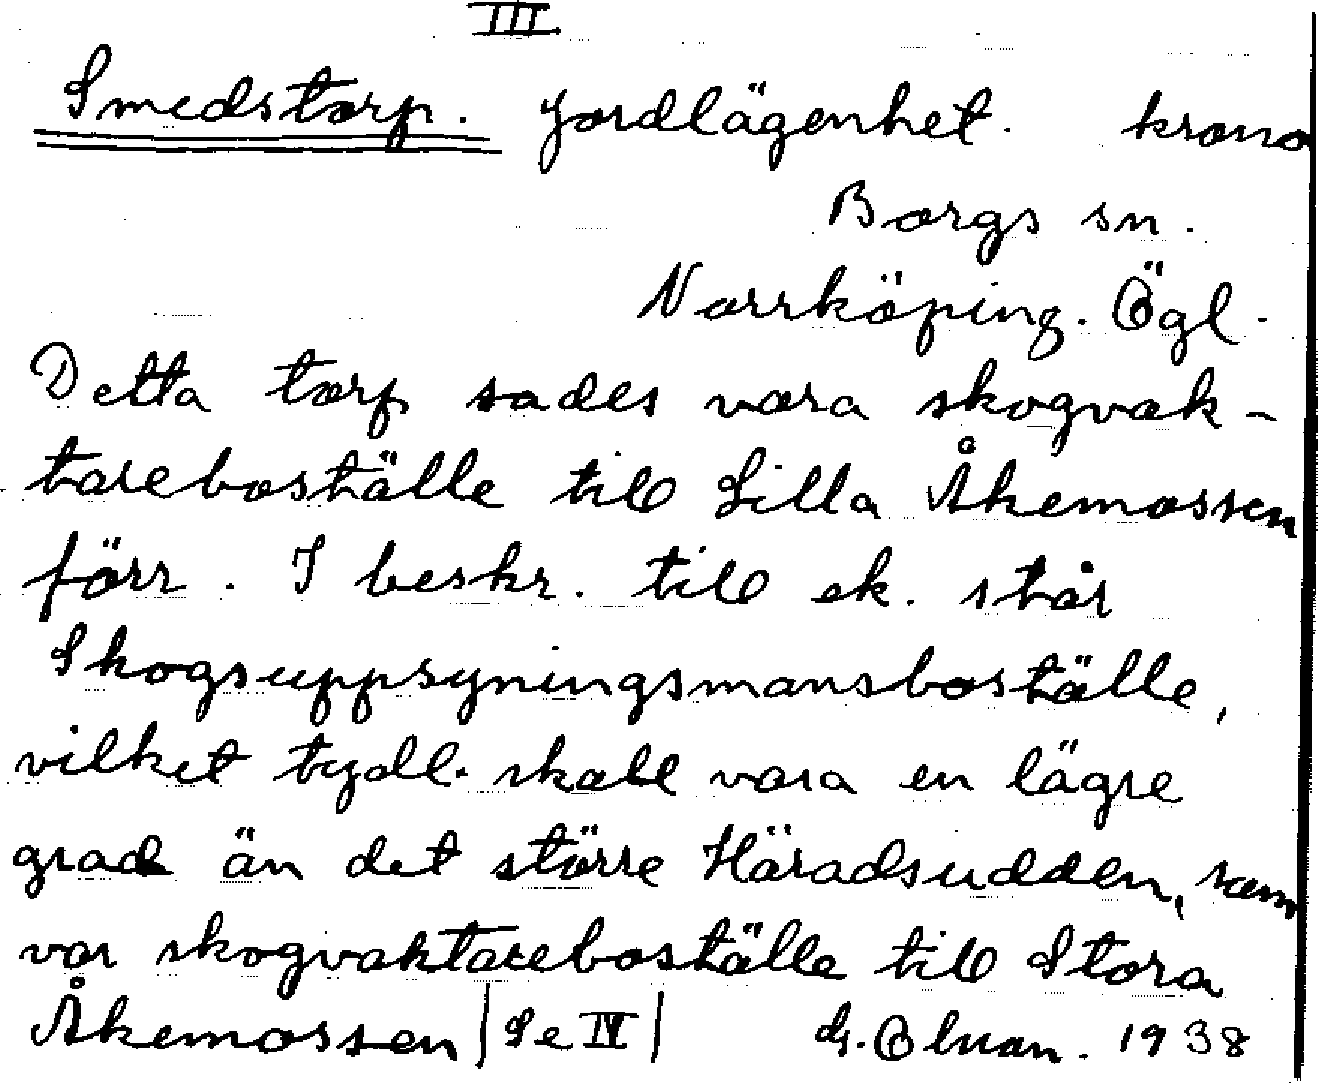 III.
Smedstorp. Jordlägenhet. krono
Borgs sn.
Norrköping. Ögl.
Detta torp sades vara skogvak-
tareboställe till Lilla Åkemossen
förr. I beskr. till ek. står
Skogsuppsyningsmansboställe,
vilket tydl. skall vara en lägre
grad än det större Häradsudden, som
var skogvaktareboställe till Stora
Åkemossen |Se IV| 1938